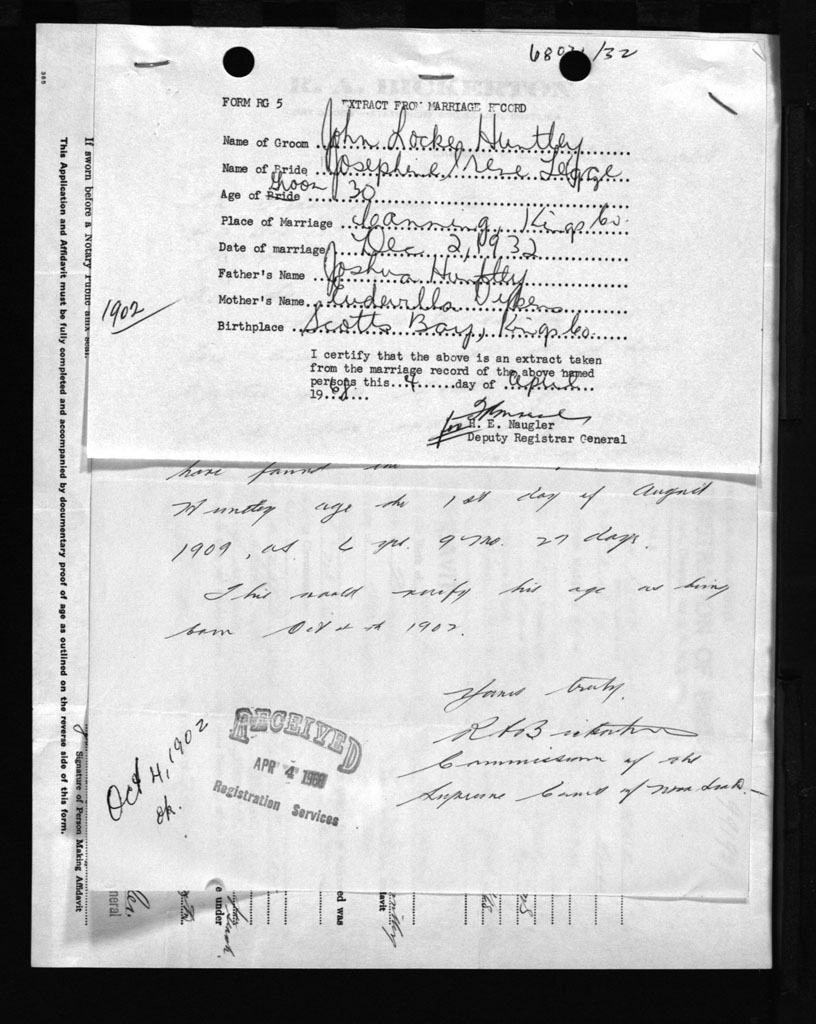 FORM RG 5 EXTRACT FROM MARRIAGE RECORD
Name of Groom John Locke Huntley
Name of Bride Josephine Irene
Groom
Age of Bride 30
Place of Marriage Canning, Kings Co.
Date of marriage Dec 2, 1932
Father's Name Joshua Huntley
Mother's Name
Birthplace Scotts Bay, Kings Co.
1902
I certify that the above is an extract taken
from the marriage record of the above named
persons this 4 day of April
1968
for H. E. Naugler
Deputy Registrar General
have found
Huntley age the 1st day of August
1909, as 6 yrs. 9 mo. 27 days.
This would verify his age as being
born Oct 4th 1902.
Yours truly,
Commissioner of the
Supreme Court of Nova
Oct 4, 1902
ok.
RECEIVED
APR 4 1968
Registration Services
If sworn before a Notary Public
This Application and Affidavit must be fully completed and accompanied by documentary proof of age as outlined on the reverse side of this form.
Signature of Person Making Affidavit
e under
ed was